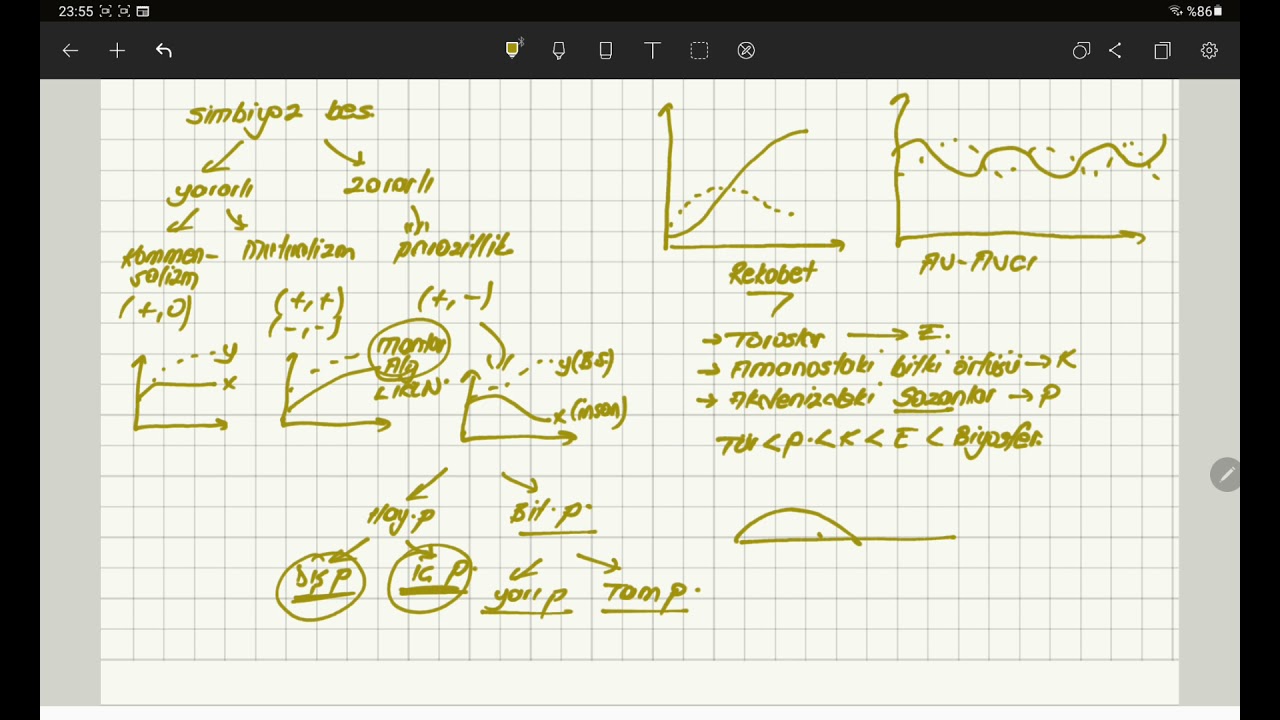 23:55
%86
T
simbiyoz bes.
yararlı
zararlı
Kommen-
salizm
Mutualizm
parazitlik
(+,0)
(+,+)
(-,-)
(+,-)
y
x
Mantar
Alg
LİKEN.
y(Bs)
x(insan)
Hay.p
Bit.p.
Dış p
İç p.
yarı p
Tam p.
Rekabet
Av-Avcı
→ Toroslar → E.
→ Amanostaki bitki örtüsü → K
→ Akdenizdeki Sazanlar → P
Tür < P. < K < E < Biyosfer.